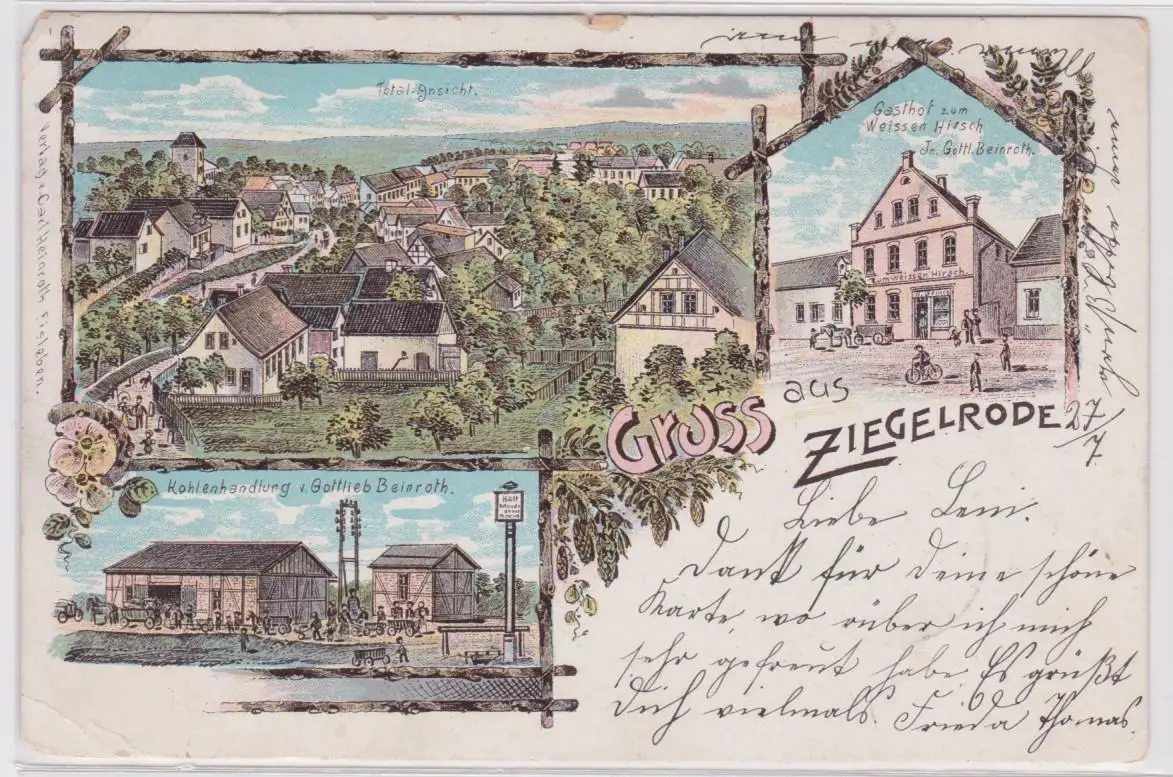 Total-Ansicht.
Gasthof zum
Weissen Hirsch
Jn. Gottl. Beinroth.
zum Weissen Hirsch
Verlag v. Carl Heinroth Eisleben.
Gruss
aus
ZIEGELRODE
27/7
Kohlenhandlung v. Gottlieb Beinroth.
Halt
Liebe Leni.
Dank für Deine schöne
Karte, wo rüber ich mich
sehr gefreut habe. Es grüßt
Dich vielmals Frieda Thomas.